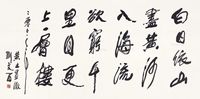 白日依山
盡黃河
入海流
欲窮千
里目更
上一層樓